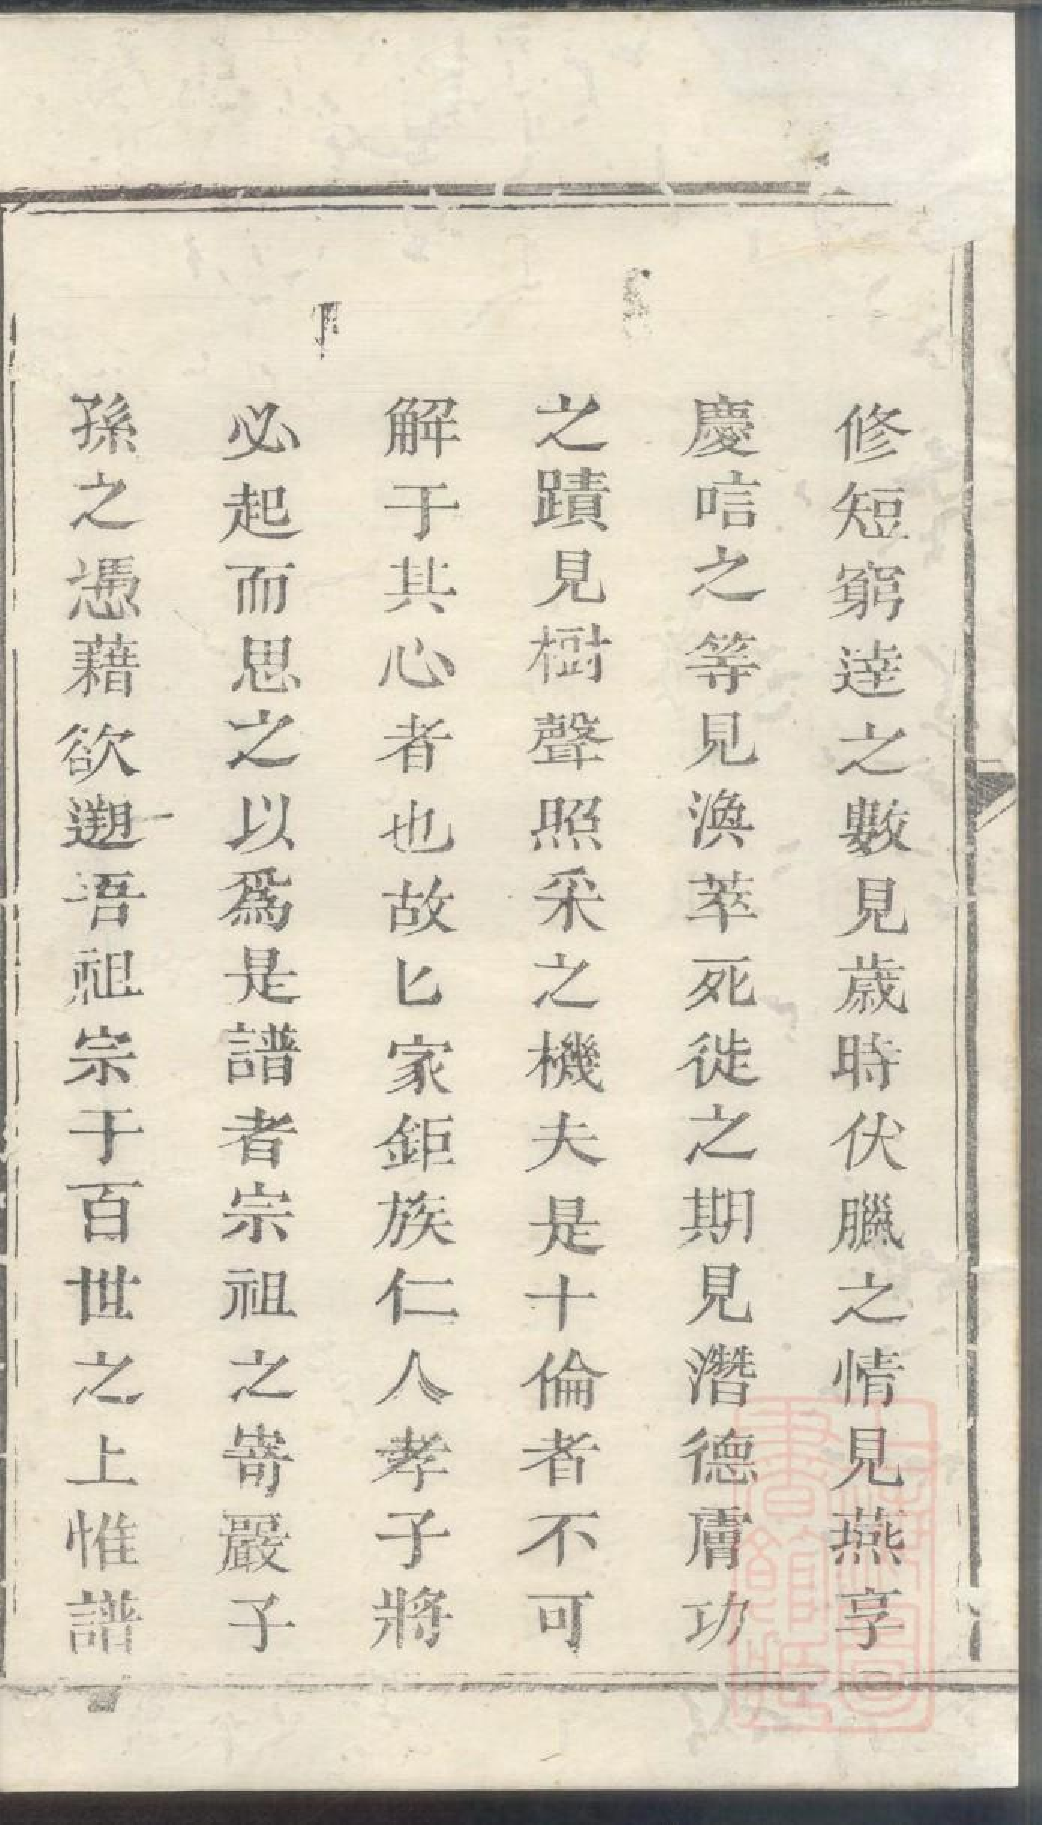 修短窮達之數見歲時伏臘之情見燕享
慶唁之等見渙萃死徙之期見潛德膚功
之蹟見樹聲照采之機夫是十倫者不可
解于其心者也故匕家鉅族仁人孝子將
必起而思之以爲是譜者宗祖之嵜嚴子
孫之憑藉欲遡吾祖宗于百世之上惟譜